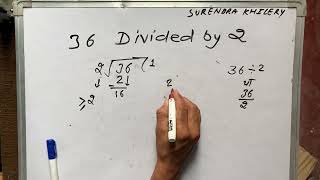 SURENDRA KHILERY
36 Divided by 2
2√36(1
= 2↓
16
≥2
2
36÷2
36
2